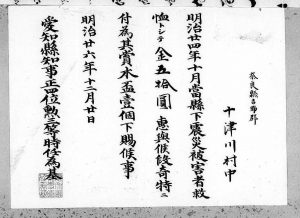 奈良縣吉野郡
十津川村中
明治廿四年十月當縣下震災被害者救
恤トシテ金五拾圓惠與候段奇特ニ
付為其賞木盃壹個下賜候事
明治廿六年十二月廿日
愛知縣知事正四位勲三等時任為基